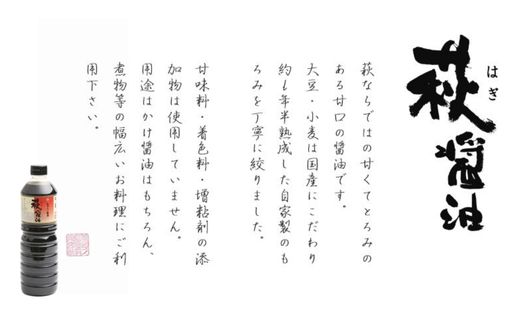 萩醤油
はぎ
萩ならではの甘くてとろみの
ある甘口の醤油です。
大豆・小麦は国産にこだわり
約1年半熟成した自家製のも
ろみを丁寧に絞りました。
甘味料・着色料・増粘剤の添
加物は使用していません。
用途はかけ醤油はもちろん、
煮物等の幅広いお料理にご利
用下さい。
萩醤油